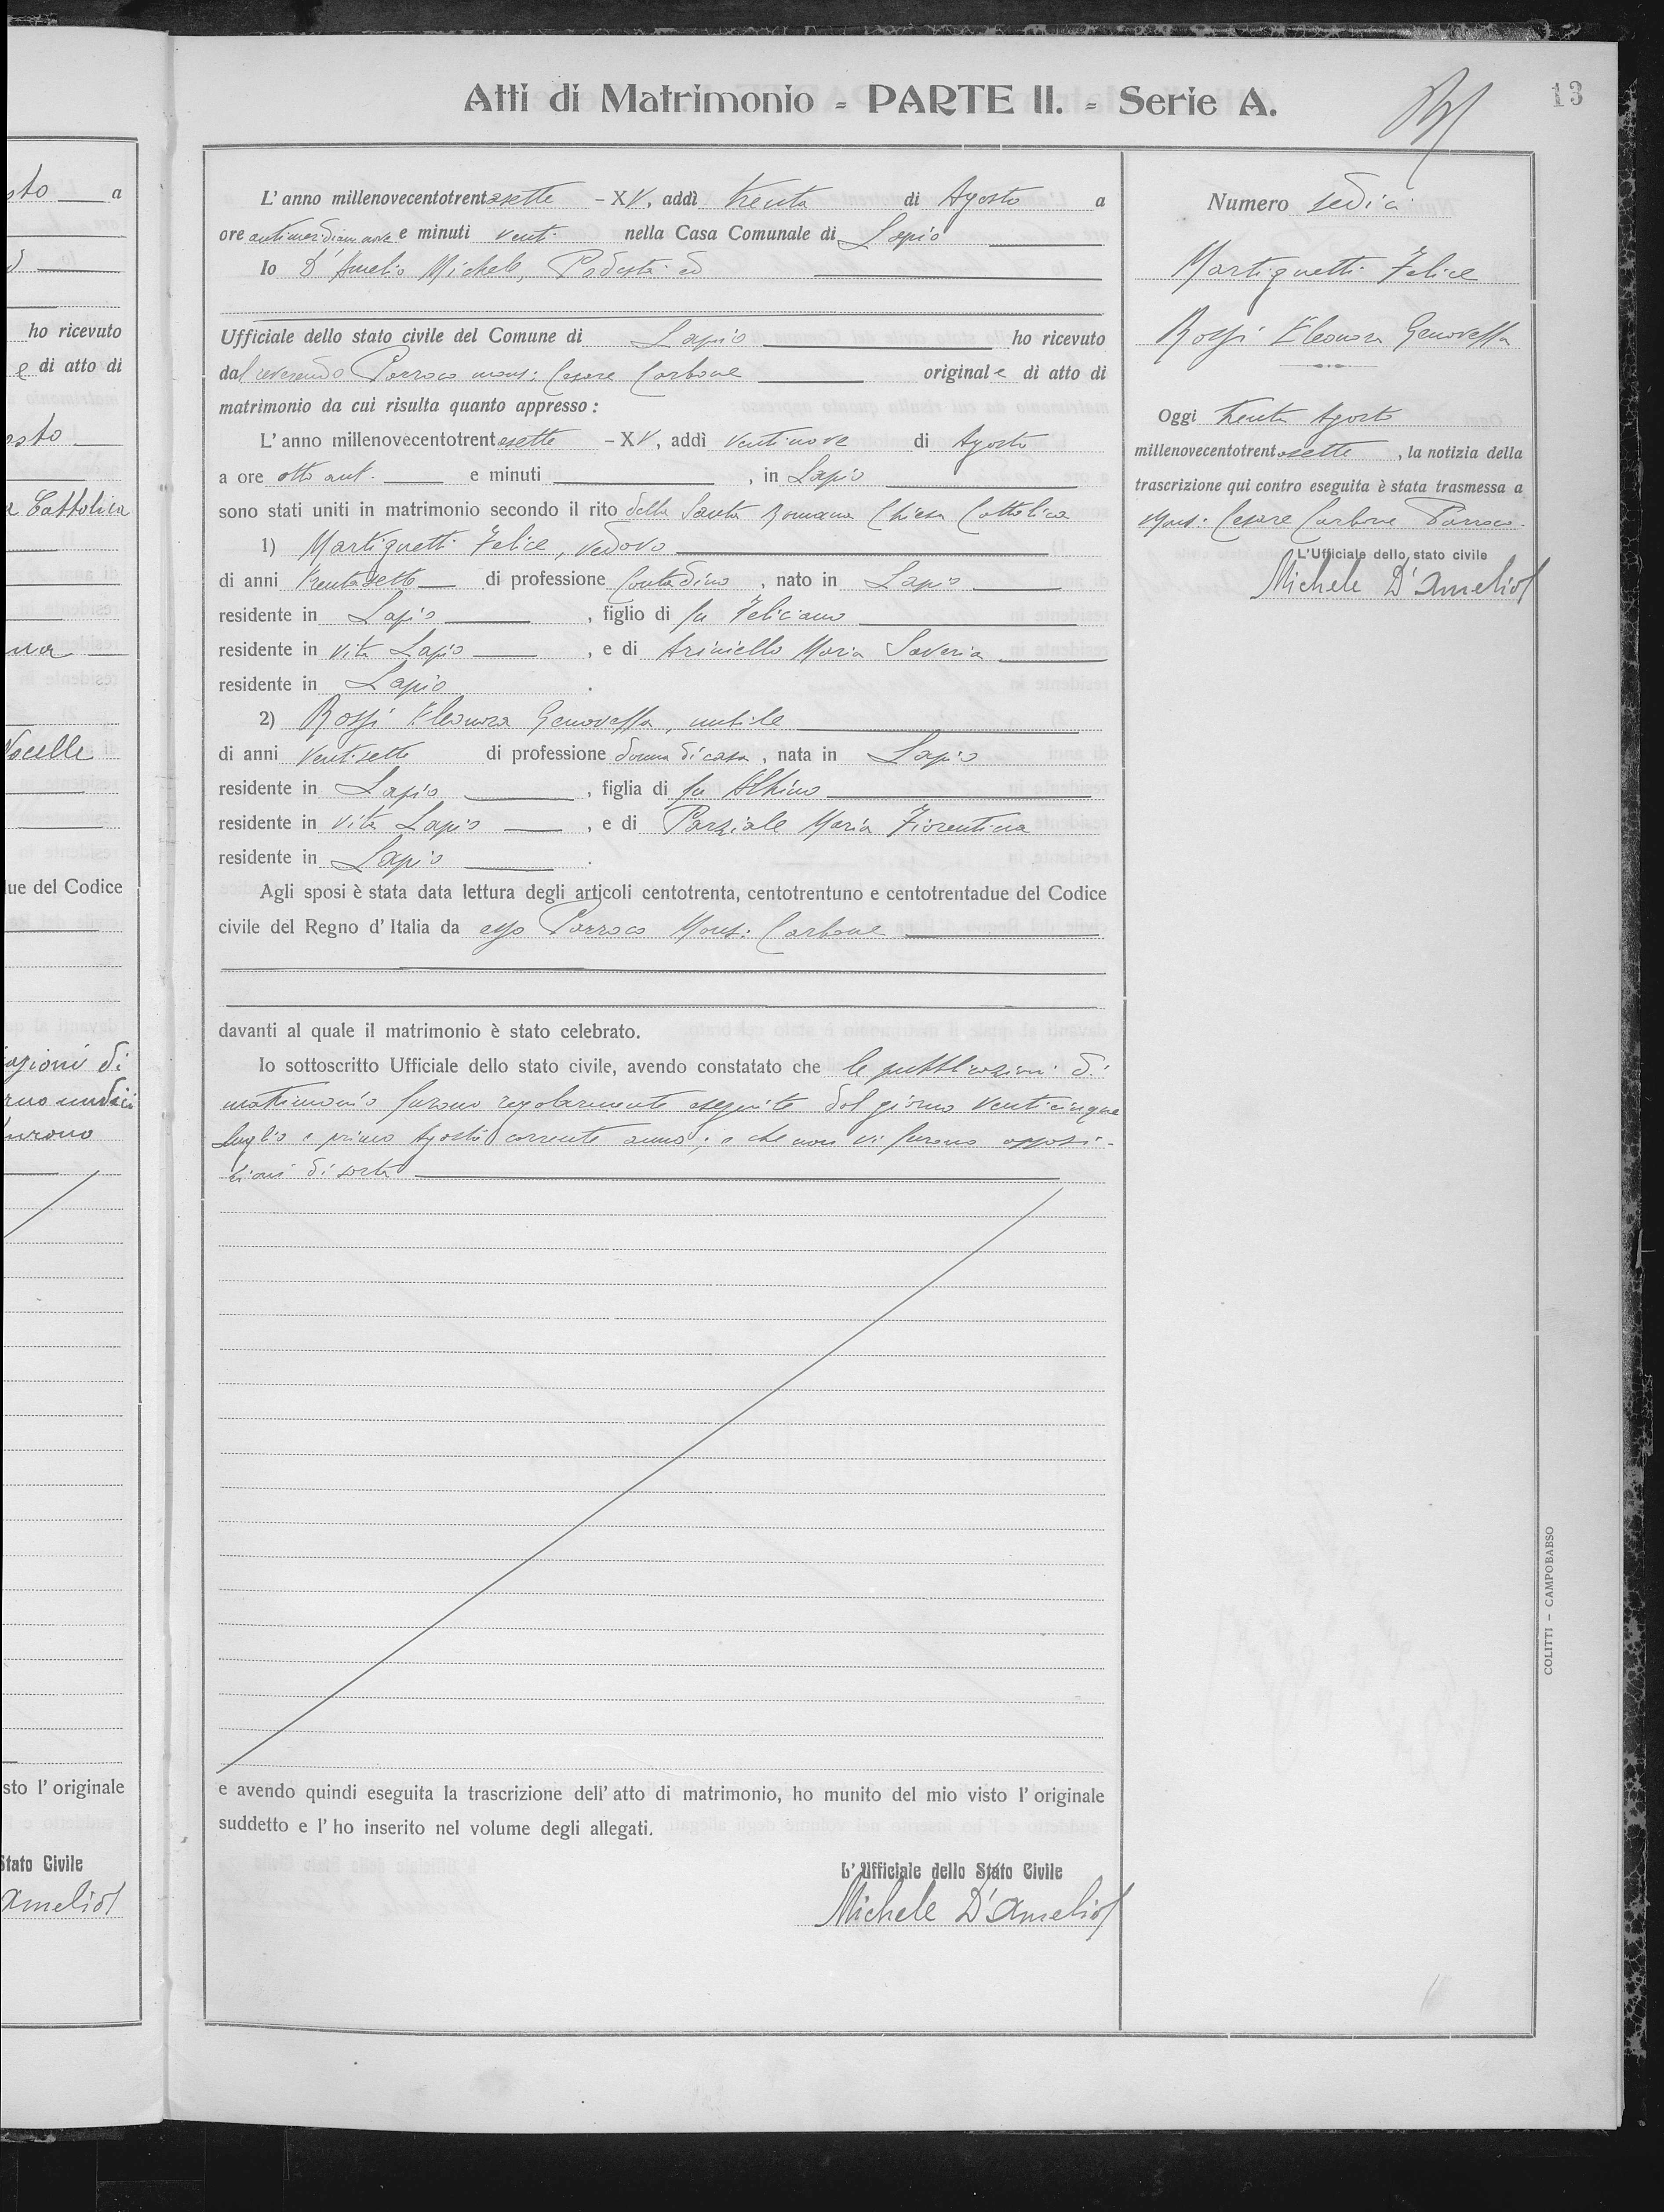 sto a
ho ricevuto
e di atto di
osto
a Cattolica
na
Nocelle
due del Codice
azioni di
rno undici
furono
sto l' originale
Stato Civile
Ameliof
Atti di Matrimonio - PARTE II. - Serie A.
13
L' anno millenovecentotrentasette - XV, addì trenta di Agosto a
ore antimeridiane nove e minuti venti nella Casa Comunale di Lapio
Io D'Amelio Michele, Podestà ed
Ufficiale dello stato civile del Comune di Lapio ho ricevuto
dal reverendo Parroco mons: Cesare Carbone originale di atto di
matrimonio da cui risulta quanto appresso :
L' anno millenovecentotrentasette - XV, addì ventinove di Agosto
a ore otto ant. e minuti , in Lapio
sono stati uniti in matrimonio secondo il rito della Santa Romana Chiesa Cattolica
1) Martignetti Felice, vedovo
di anni trentasette di professione Contadino , nato in Lapio
residente in Lapio , figlio di fu Feliciano
residente in vita Lapio , e di Ariniello Maria Saveria
residente in Lapio .
2) Rossi Eleonora Genoveffa, nubile
di anni ventisette di professione donna di casa , nata in Lapio
residente in Lapio , figlia di fu Albino
residente in vita Lapio , e di Parziale Maria Fiorentina
residente in Lapio .
Agli sposi è stata data lettura degli articoli centotrenta, centotrentuno e centotrentadue del Codice
civile del Regno d' Italia da esso Parroco Mons: Carbone
davanti al quale il matrimonio è stato celebrato.
Io sottoscritto Ufficiale dello stato civile, avendo constatato che le pubblicazioni di
matrimonio furono regolarmente eseguite dal giorno venticinque
luglio e primo Agosto corrente anno; e che non vi furono opposi-
zioni di sorta
e avendo quindi eseguita la trascrizione dell' atto di matrimonio, ho munito del mio visto l' originale
suddetto e l' ho inserito nel volume degli allegati.
L' Ufficiale dello Stato Civile
Michele D'Ameliof
Numero sedici
Martignetti Felice
Rossi Eleonora Genoveffa
Oggi trenta Agosto
millenovecentotrentasette , la notizia della
trascrizione qui contro eseguita è stata trasmessa a
Mons: Cesare Carbone Parroco.
L'Ufficiale dello stato civile
Michele D'Ameliof
COLITTI - CAMPOBABSO